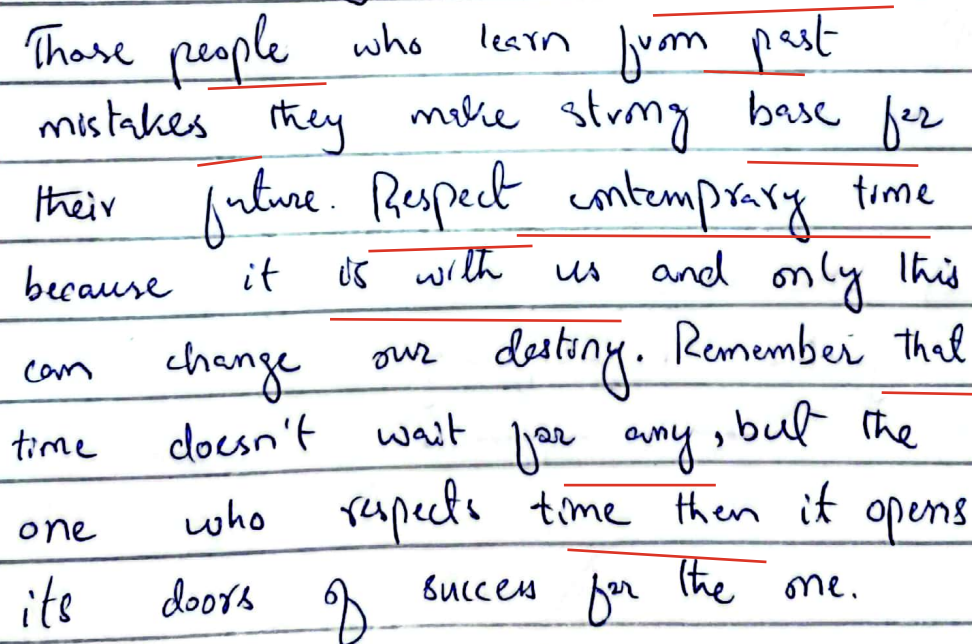 Those people who learn from past
mistakes they make strong base for
their future. Respect contemprary time
because it is with us and only this
can change our destiny. Remember that
time doesn't wait for any, but the
one who respects time then it opens
its doors of success for the one.